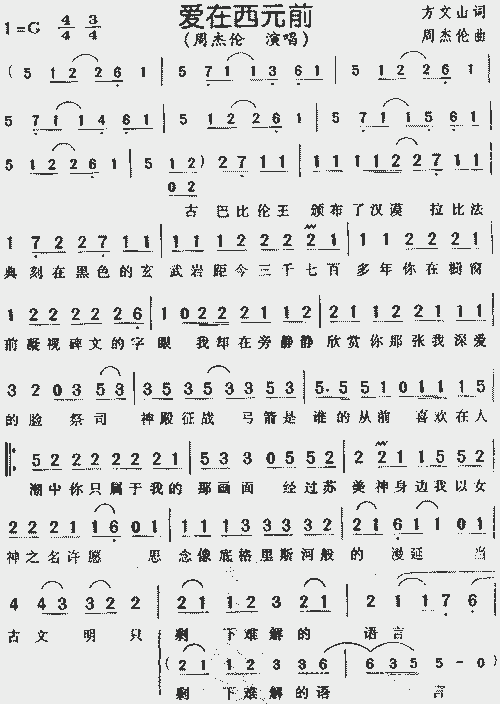 爱在西元前
1=G 4/4 3/4
(周杰伦 演唱)
方文山词
周杰伦曲
( 5 1 2 2 6 1 | 5 7 1 1 3 6 1 | 5 1 2 2 6 1 |
5 7 1 1 4 6 1 | 5 1 2 2 6 1 | 5 7 1 1 5 6 1 |
5 1 2 2 6 1 | 5 1 2 ) 2 7 1 1 | 1 1 1 1 2 2 7 1 1 |
0 2
古 巴比伦王 颁布了汉漠 拉比法
1 7 2 2 7 1 1 | 1 1 1 2 2 2 2 1 | 1 1 2 1 2 2 2
典 刻在黑色的玄 武岩距今三千七百 多年你在橱窗
1 2 2 2 2 2 6 | 1 0 2 2 2 2 1 1 2 | 2 1 1 2 2 1 1 1
前凝视碑文的字 眼 我却在旁静静 欣赏你那张我深爱
3 2 0 3 5 3 | 3 5 3 5 3 3 5 3 | 5· 5 5 1 0 1 1 1 5
的脸 祭司 神殿征战 弓箭是 谁的从前 喜欢在人
5 2 2 2 2 2 2 1 | 5 3 3 0 5 5 2 | 2 2 1 1 5 5 2
潮中你只属于我的 那画面 经过苏 美神身边我以女
2 2 2 1 1 6 0 1 | 1 1 1 3 3 3 3 3 3 | 2 1 6 1 1 0 1
神之名许愿 思 念像底格里斯河般 的 漫延 当
4 4 3 3 2 2 | 2 1 1 2 3 3 | 2 1 1 7 6
古 文 明 只 剩 下难解的 语言
( 2 1 1 2 3 3 6 | 6 3 5 5 - 0 )
剩 下难解的语 言